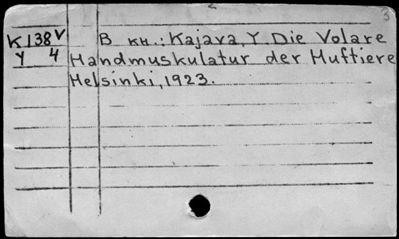 3
K138V B кн.: Kajava, Y. Die Volare
Y 4 Handmuskulatur der Huftiere
Helsinki, 1923.